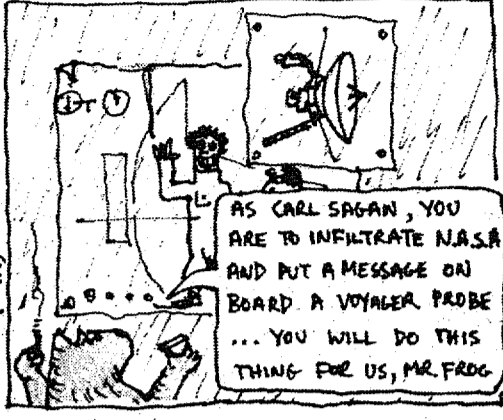 AS CARL SAGAN, YOU
ARE TO INFILTRATE N.A.S.A
AND PUT A MESSAGE ON
BOARD A VOYAGER PROBE
... YOU WILL DO THIS
THING FOR US, MR. FROG